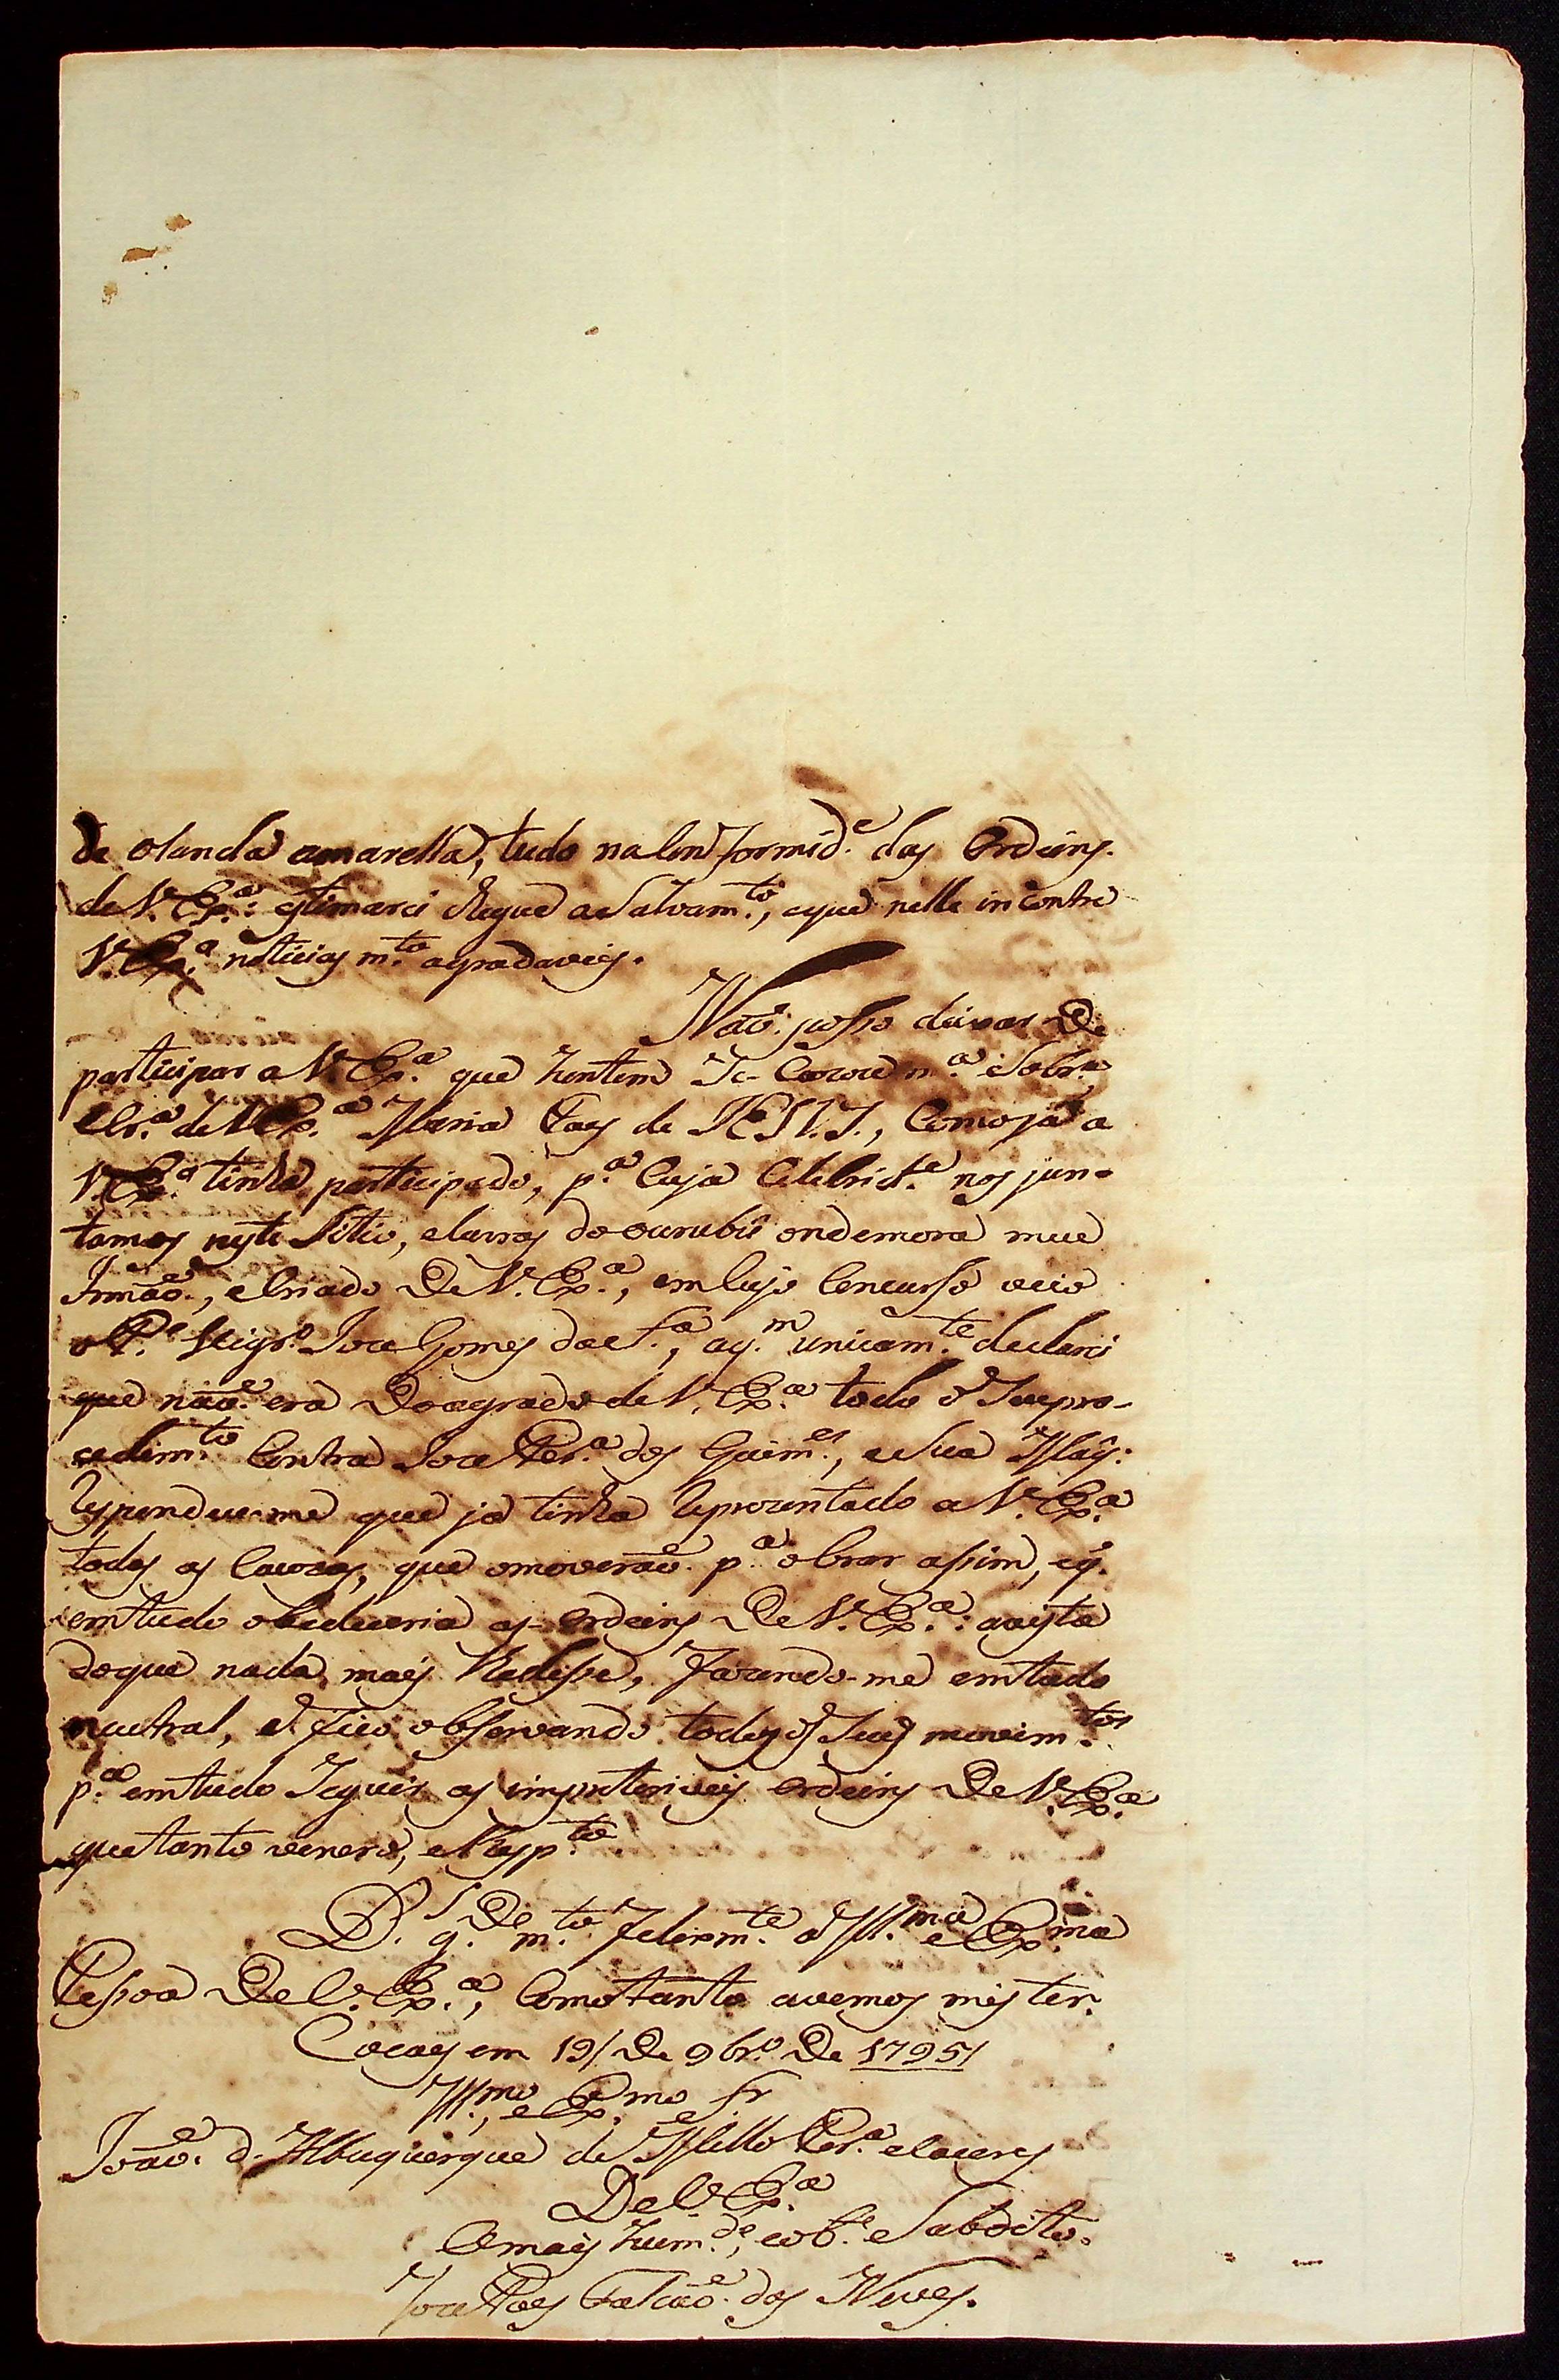 de olanda amarella, tudo na Conformid.e das Ordeins.
de V. Ex.a: estimarei chegue a Salvam.to, e que nelle incontre
V. Ex.a noticias m.to agradaveis.
Naõ posso deixar De
participar a V. Ex.a que hontem Se Cazou m.a Sobr.a
e Cr.a de V. Ex.a Maria Paes de JESUS., Como ja a
V. Ex.a tinha participado, p.a Cuja Celebrid.e nos jun-
tamos neste Sitio, e lavras do ourubû onde mora meu
Irmaõ, e Criado De V. Ex.a, em Cujo Concurso veio
o P.e Vigr.o Joze Gomes da S.a, a q.m unicam.te declarei
que naõ era Do agrado de V. Ex.a todo o Seu pro-
cedim.to Contra Joze Per.a dos Guim.es, e Sua May:
Respondeu-me que ja tinha Reprezentado a V. Ex.a
todas as Cauzas, que o moveraõ p.a obrar assim, e q.
em tudo obedeceria as Ordeins De V. Ex.a: a vista
do que nada mais lhe disse, fazendo-me em tudo
neutral, e fico observando todos os Seus movim.tos
p.a em tudo Seguir as impreteriveis Ordeins De V. Ex.a
que tanto venero, e Resp.to
D.s g.De m.to felizm.te a Ill.ma e Ex.ma
Pessoa De V. Ex.a, Como tanto avemos mister.
Cocaes em 19/ De 9br.o De 1795/
Ill.mo, e Ex.mo Sr
Joaõ d'Albuquerque de Mello Per.a e Caceres
De V. Ex.a
O mais hum.de, e ob.e Subdito.
Joze Paes Falcaõ das Neves.